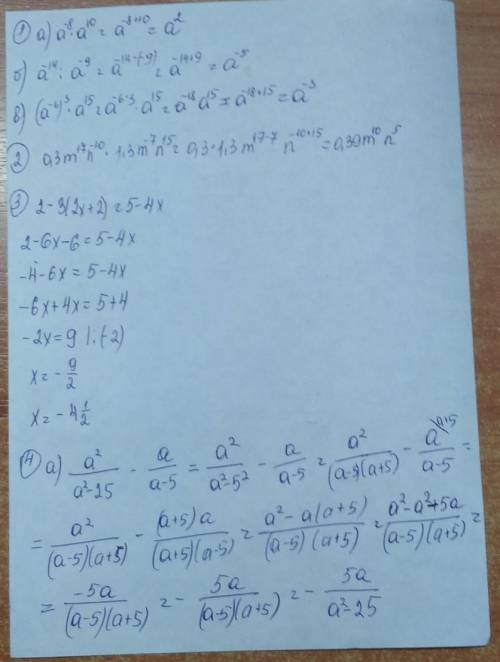 ① а) a⁻⁸·a¹⁰ = a⁻⁸⁺¹⁰ = a²
б) a⁻¹⁴ : a⁻⁹ = a⁻¹⁴⁻⁽⁻⁹⁾ = a⁻¹⁴⁺⁹ = a⁻⁵
в) (a⁻⁶)³·a¹⁵ = a⁻⁶·³·a¹⁵ = a⁻¹⁸a¹⁵ = a⁻¹⁸⁺¹⁵ = a⁻³
② 0,3m¹⁷n⁻¹⁰·1,3m⁻⁷n¹⁵ = 0,3·1,3m¹⁷⁻⁷ n⁻¹⁰⁺¹⁵ = 0,39m¹⁰n⁵
③ 2-3(2x+2)=5-4x
2-6x-6=5-4x
-4-6x=5-4x
-6x+4x=5+4
-2x=9 |:(-2)
x=-9/2
x=-4 1/2
④ а) a²/(a²-25) - a/(a-5) = a²/(a²-5²) - a/(a-5) = a²/((a-5)(a+5)) - a\a+5/(a-5) =
= a²/((a-5)(a+5)) - (a+5)a/((a+5)(a-5)) = (a²-a(a+5))/((a-5)(a+5)) = (a²-a²+5a)/((a-5)(a+5)) =
= -5a/((a-5)(a+5)) = - 5a/((a-5)(a+5)) = - 5a/(a²-25)